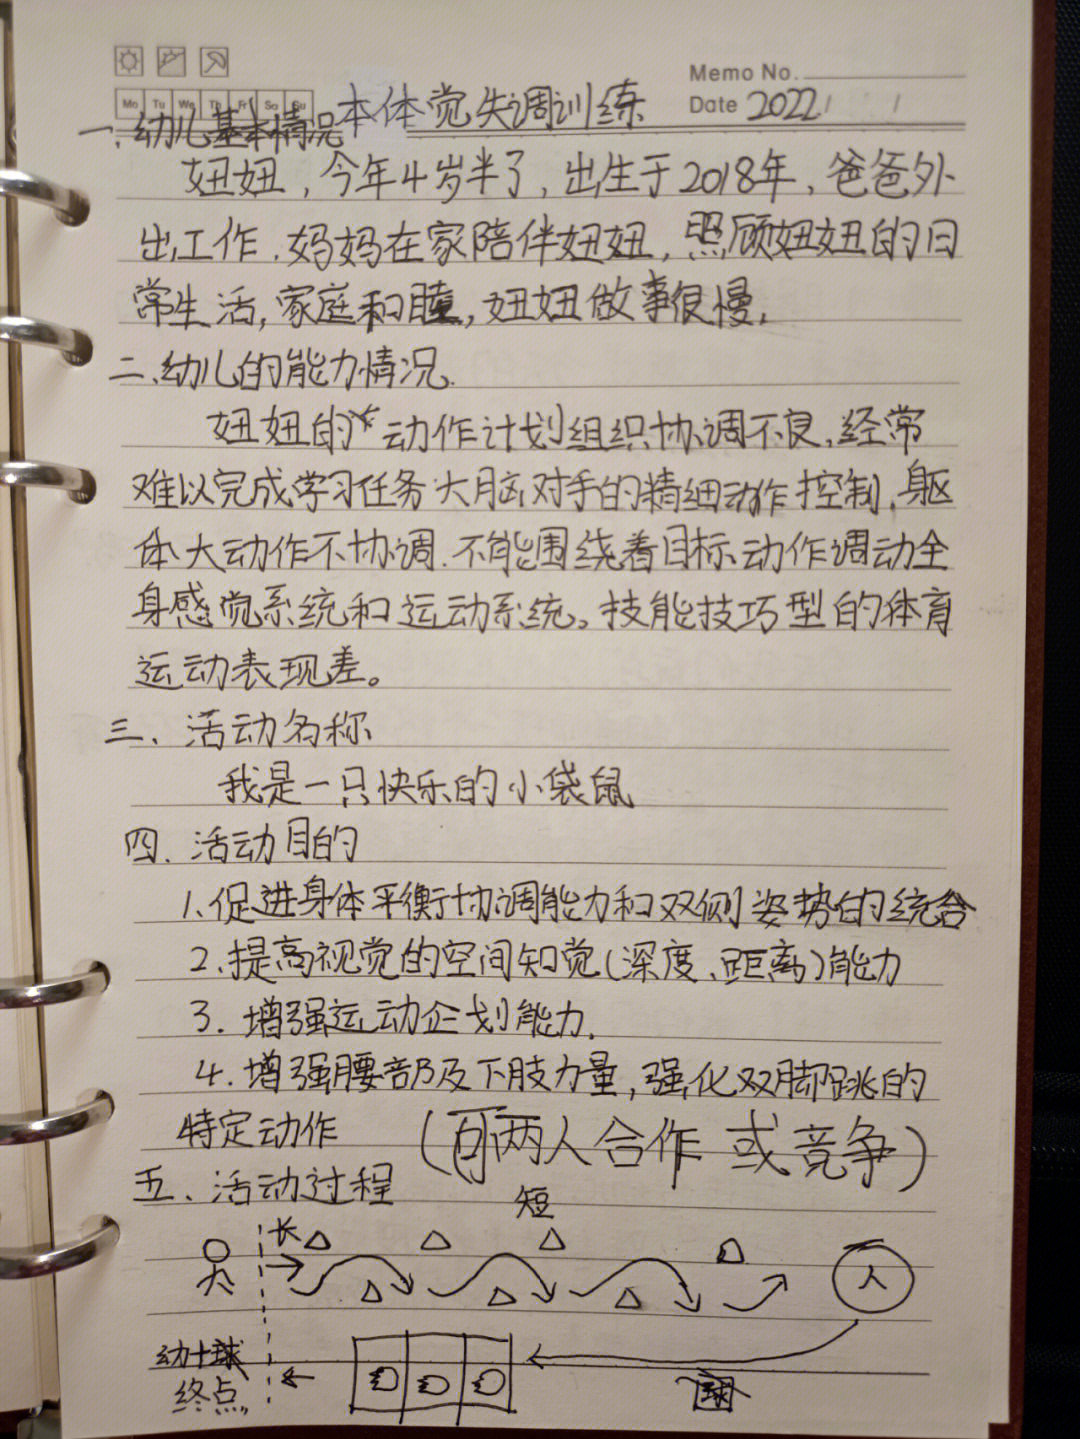 Memo No.
Mo Tu We Th Fr Sa Su
Date 2022 / /
本体觉失调训练
一.幼儿基本情况
妞妞,今年4岁半了,出生于2018年,爸爸外
出工作.妈妈在家陪伴妞妞,照顾妞妞的日
常生活,家庭和睦,妞妞做事很慢,
二、幼儿的能力情况.
妞妞的动作计划组织协调不良,经常
难以完成学习任务大脑对手的精细动作控制,躯
体大动作不协调.不能围绕着目标动作调动全
身感觉系统和运动系统。技能技巧型的体育
运动表现差。
三、活动名称
我是一只快乐的小袋鼠
四.活动目的
1.促进身体平衡协调能力和双侧姿势的统合
2.提高视觉的空间知觉(深度、距离)能力
3.增强运动企划能力.
4.增强腰部及下肢力量,强化双脚跳的
特定动作 (可两人合作或竞争)
五、活动过程
短
长
人
幼+球
终点
球